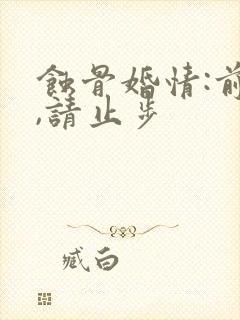 蝕骨婚情:前
,請止步
臧白